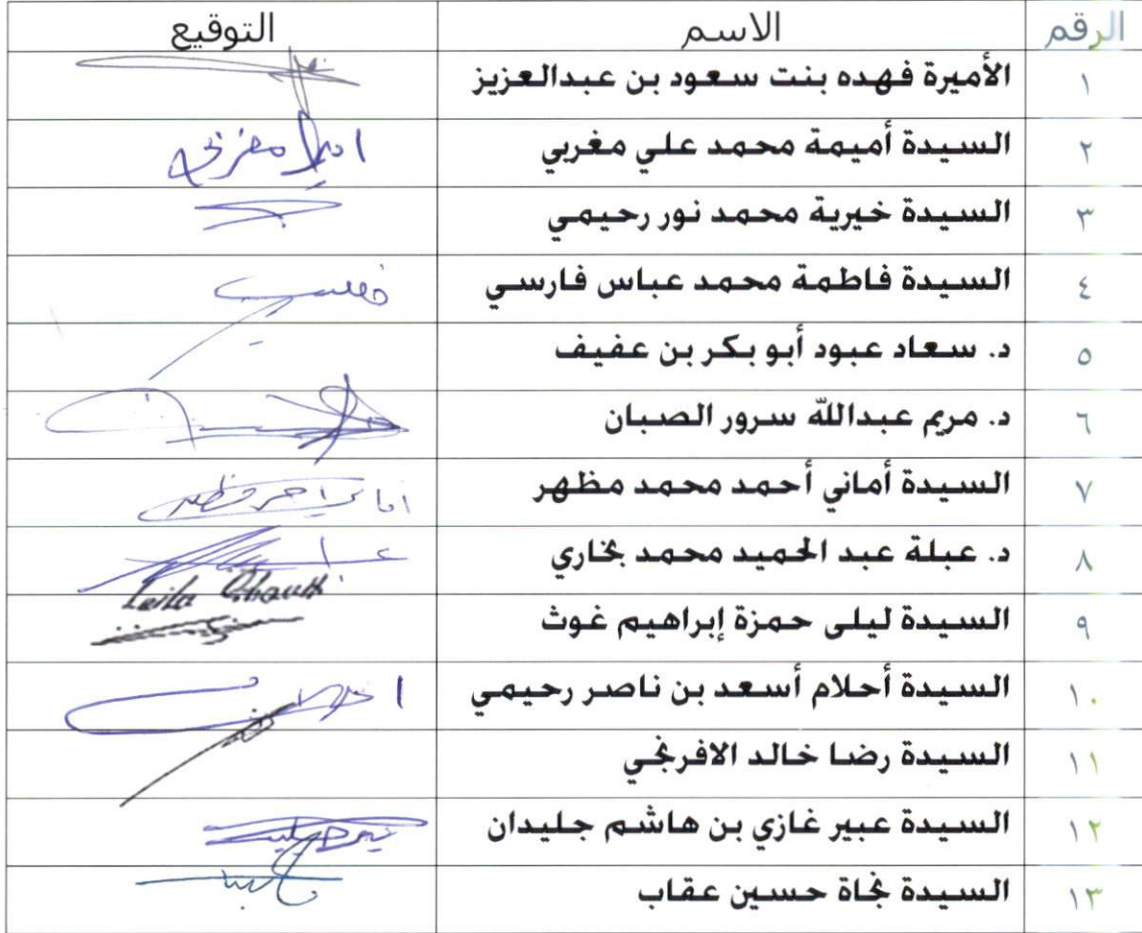 الرقم الاسم التوقيع
١ الأميرة فهده بنت سعود بن عبدالعزيز
٢ السيدة أميمة محمد علي مغربي
٣ السيدة خيرية محمد نور رحيمي
٤ السيدة فاطمة محمد عباس فارسي
٥ د. سعاد عبود أبو بكر بن عفيف
٦ د. مريم عبدالله سرور الصبان
٧ السيدة أماني أحمد محمد مظهر اماني احمد مظهر
٨ د. عبلة عبد الحميد محمد بخاري
Leila Ghouth
٩ السيدة ليلى حمزة إبراهيم غوث
١٠ السيدة أحلام أسعد بن ناصر رحيمي
١١ السيدة رضا خالد الافرنجي
١٢ السيدة عبير غازي بن هاشم جليدان
١٣ السيدة نجاة حسين عقاب